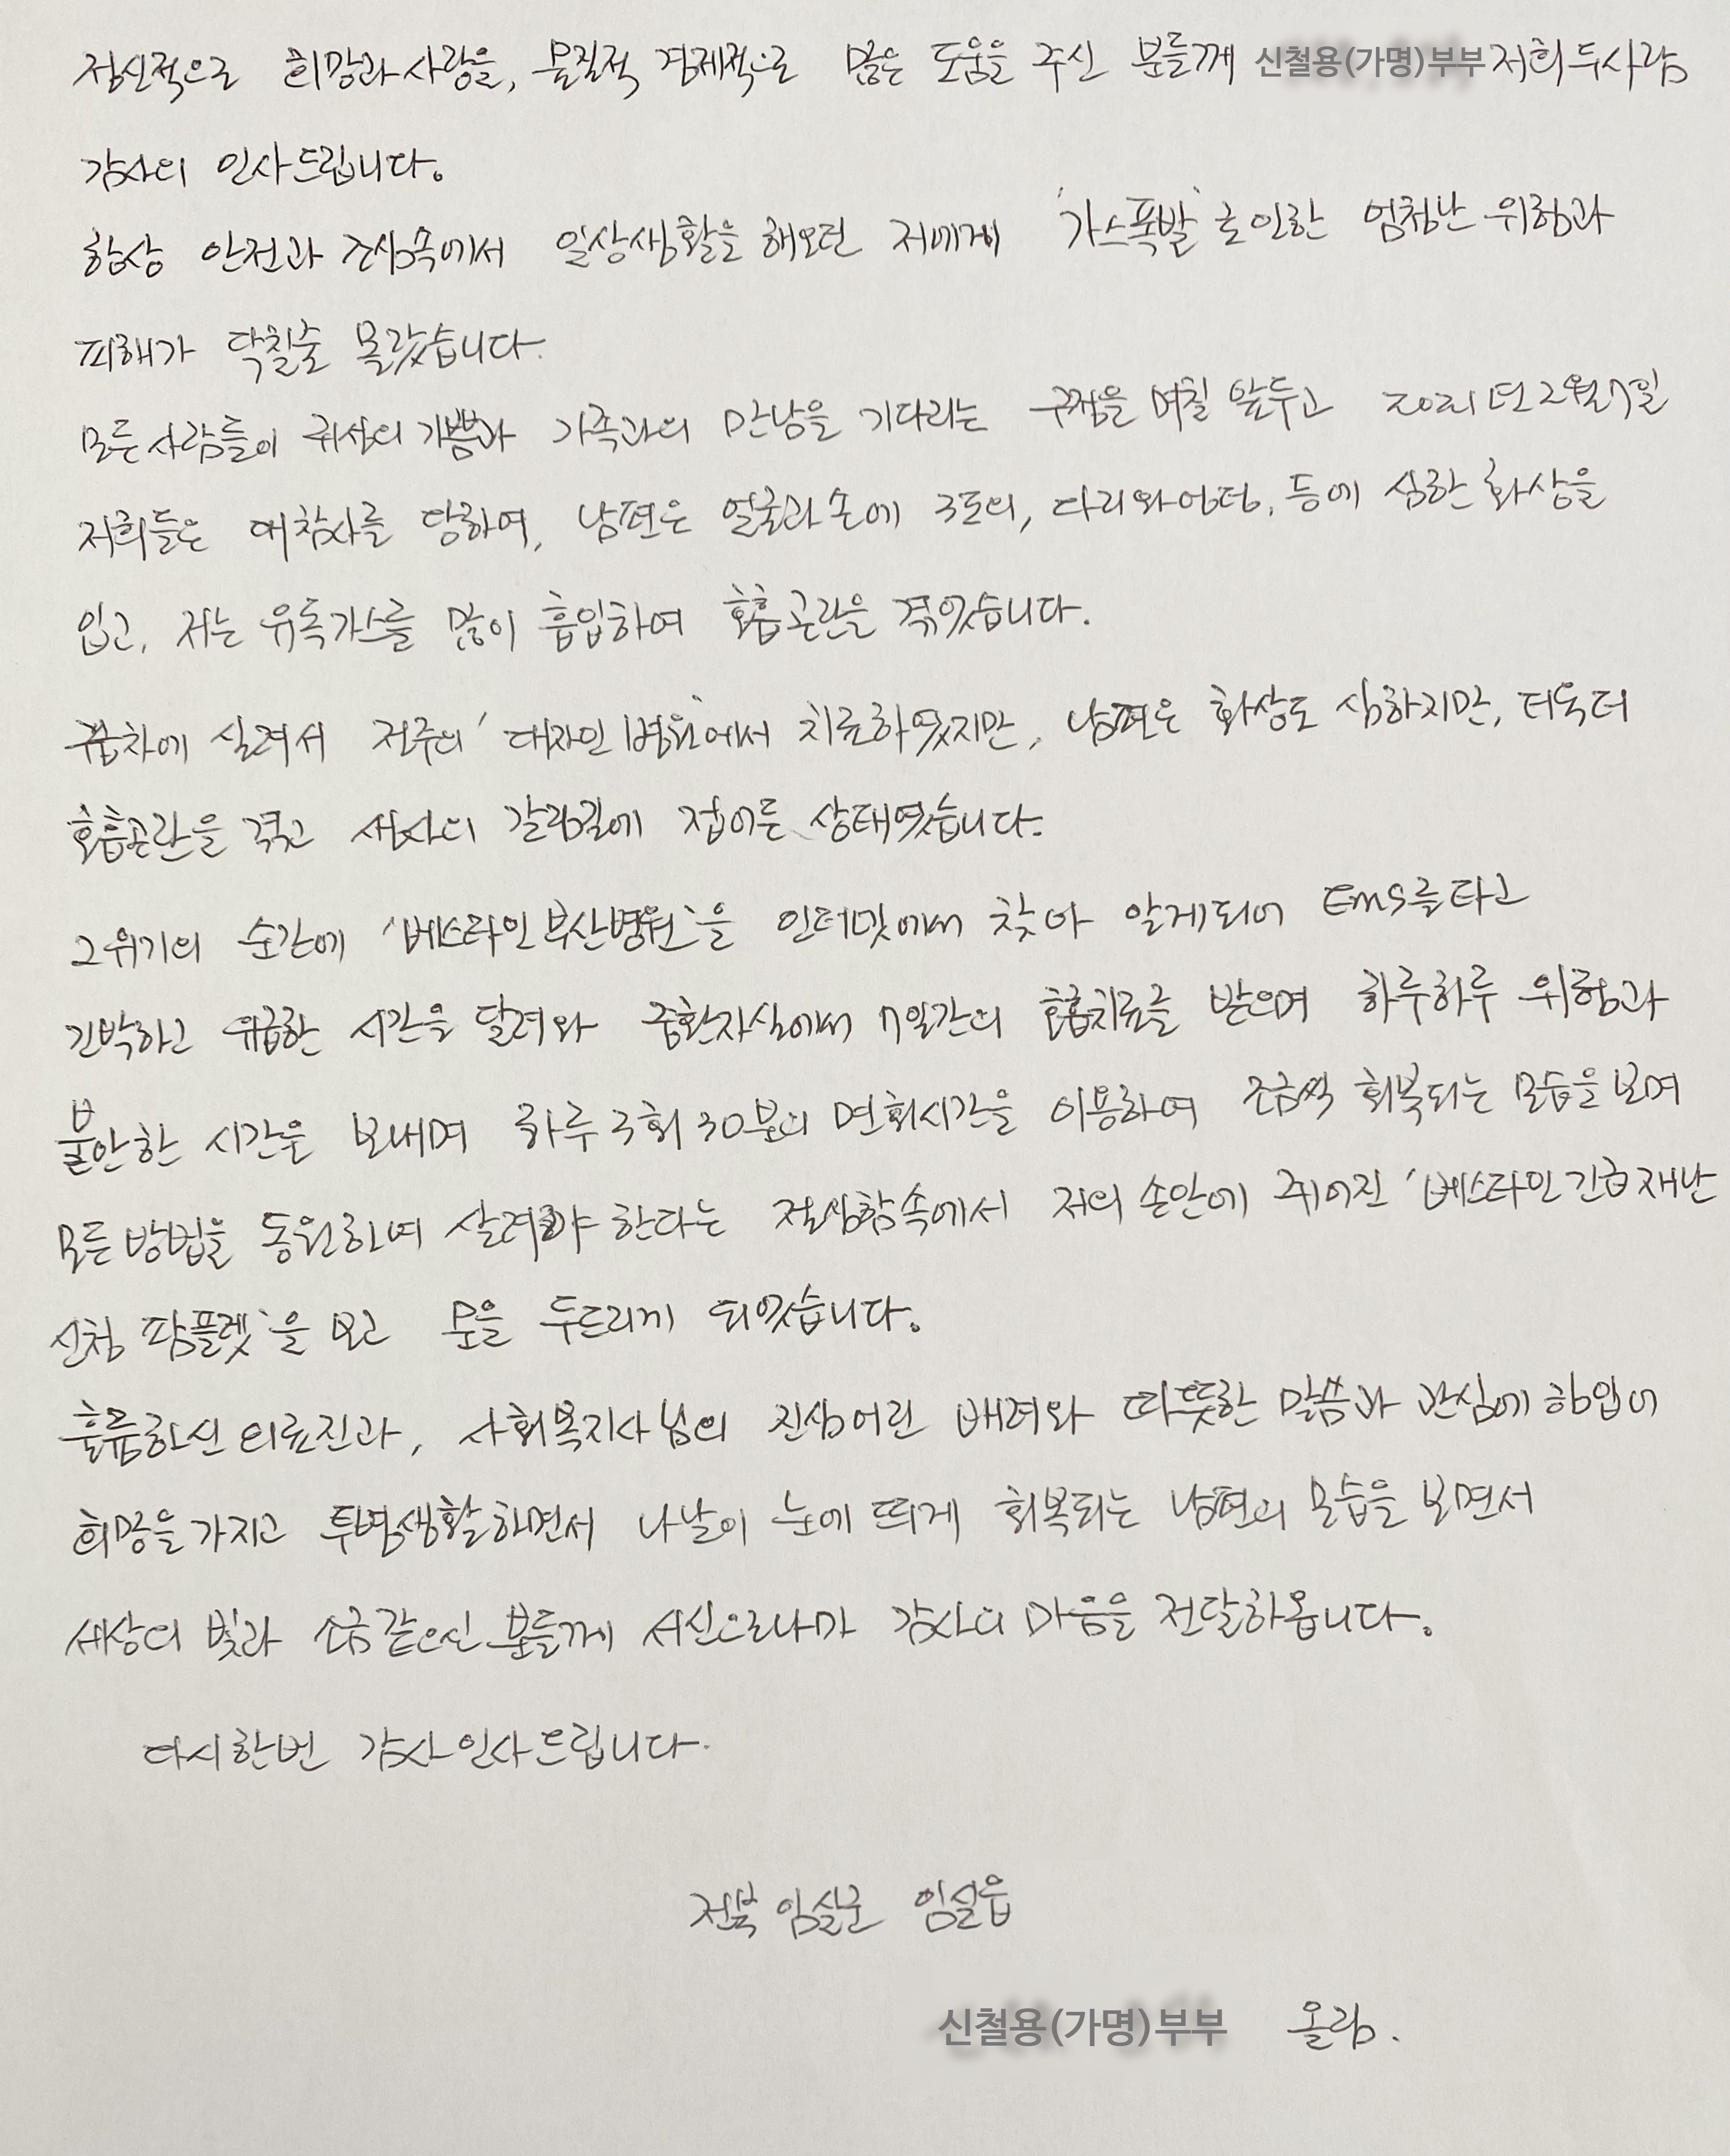 정신적으로 희망과 사랑을, 물질적 경제적으로 많은 도움을 주신 분들께 신철용(가명)부부 저희 두사람
감사의 인사드립니다.
항상 안전과 조심속에서 일상생활을 해오던 저에게 '가스폭발'로 인한 엄청난 위험과
피해가 닥칠줄 몰랐습니다.
모든 사람들이 귀성의 기쁨과 가족과의 만남을 기다리는 구정을 며칠 앞두고 2021년 2월 7일
저희들은 대참사를 당하여, 남편은 얼굴과 손에 3도의, 다리와 엉덩, 등에 심한 화상을
입고, 저는 유독가스를 많이 흡입하여 호흡곤란을 겪었습니다.
구급차에 실려서 전주의 '대자인병원'에서 치료하였지만, 남편은 화상도 심하지만, 더욱더
호흡곤란을 겪고 생사의 갈림길에 접어든 상태였습니다.
그 위기의 순간에 '베스티안부산병원'을 인터넷에서 찾아 알게되어 EMS를 타고
긴박하고 위급한 시간을 달려와 중환자실에서 7일간의 호흡치료를 받으며 하루하루 위험과
불안한 시간을 보내며 하루 3회 30분의 면회시간을 이용하여 조금씩 회복되는 모습을 보며
모든 방법을 동원하여 살려야 한다는 절실함속에서 저의 손안에 쥐어진 '베스티안 긴급재난
신청 팜플렛'을 보고 문을 두드리게 되었습니다.
훌륭하신 의료진과, 사회복지사님의 진심어린 배려와 따뜻한 말씀과 관심에 힘입어
희망을 가지고 투병생활하면서 나날이 눈에 띄게 회복되는 남편의 모습을 보면서
세상의 빛과 소금같으신 분들께 서신으로나마 감사의 마음을 전달하옵니다.
다시한번 감사인사드립니다.
전북 임실군 임실읍
신철용(가명)부부 올림.